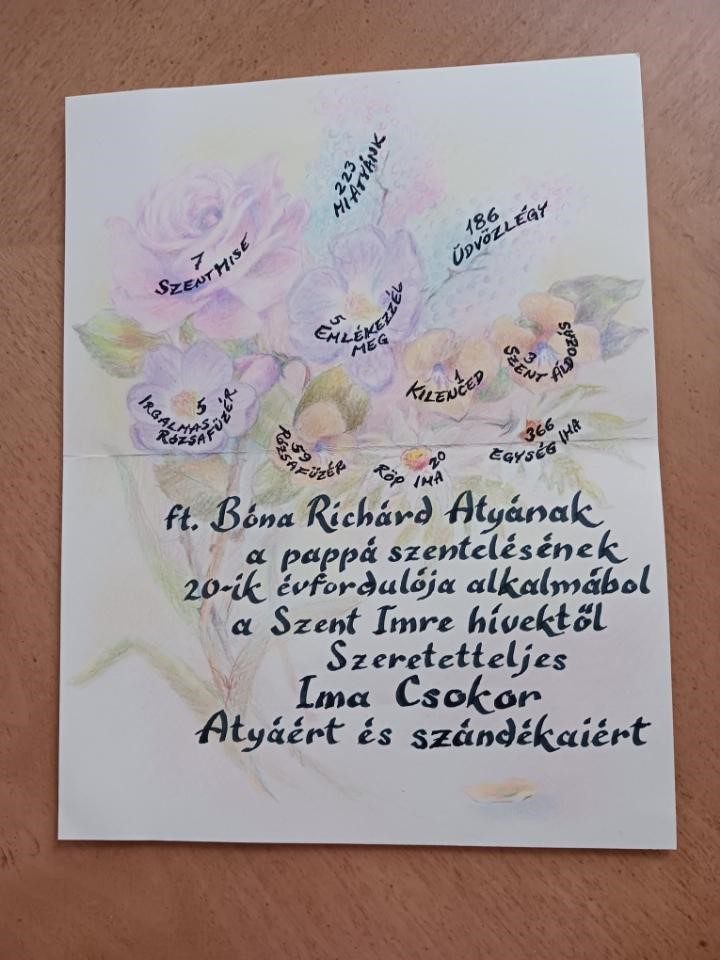 223
MIATYÁNK
186
ÜDVÖZLÉGY
7
SZENTMISE
5
EMLÉKEZZÉL
MEG
3
SZENT ÁLDOZÁS
1
KILENCED
5
IRGALMAS
RÓZSAFÜZÉR
59
RÓZSAFÜZÉR
20
RÖP IMA
366
EGYSÉG IMA
ft. Bóna Richárd Atyának
a pappá szentelésének
20-ik évfordulója alkalmából
a Szent Imre hívektől
Szeretetteljes
Ima Csokor
Atyáért és szándékaiért